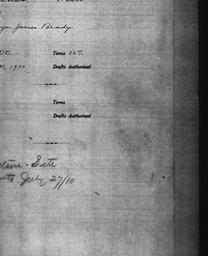 James Brady
00. Terms 10%
1910 Drafts Authorized
Terms
Drafts Authorized
Site
July 27/10